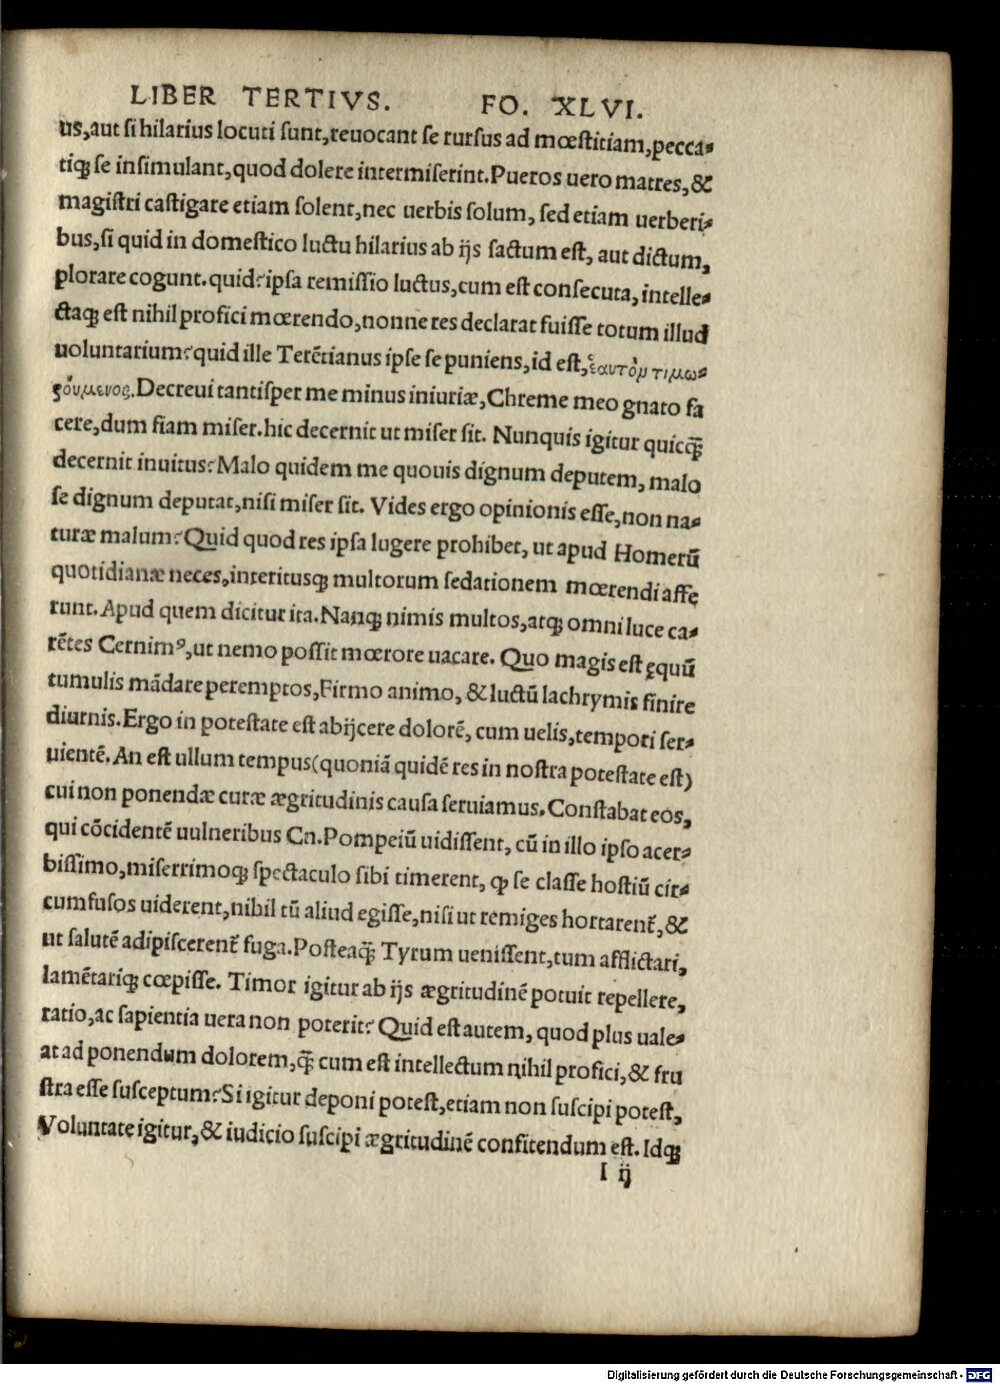 LIBER TERTIVS. FO. XLVI.
us,aut si hilarius locuti sunt,reuocant se rursus ad mœstitiam,pecca-
tiqꝫ se insimulant,quod dolere intermiserint.Pueros uero matres,&
magistri castigare etiam solent,nec uerbis solum, sed etiam uerberi-
bus,si quid in domestico luctu hilarius ab ijs factum est, aut dictum,
plorare cogunt.quid?ipsa remissio luctus,cum est consecuta, intelle-
ctaqꝫ est nihil profici mœrendo,nonne res declarat fuisse totum illud
uoluntarium?quid ille Terẽtianus ipse se puniens,id est,ἑαυτὸν τιμω-
ρούμενος.Decreui tantisper me minus iniuriæ,Chreme meo gnato fa
cere,dum fiam miser.hic decernit ut miser sit. Nunquis igitur quicq̃
decernit inuitus?Malo quidem me quouis dignum deputem, malo
se dignum deputat,nisi miser sit. Vides ergo opinionis esse,non na-
turæ malum?Quid quod res ipsa lugere prohibet, ut apud Homerũ
quotidianæ neces,interitusqꝫ multorum sedationem mœrendi affe
runt.Apud quem dicitur ita.Nanqꝫ nimis multos,atqꝫ omni luce ca-
rẽtes Cernimꝰ,ut nemo possit mœrore uacare. Quo magis est ęquũ
tumulis mãdare peremptos,Firmo animo, & luctũ lachrymis finire
diurnis.Ergo in potestate est abijcere dolorẽ, cum uelis,tempori ser-
uientẽ.An est ullum tempus(quoniã quidẽ res in nostra potestate est)
cui non ponendæ curæ ægritudinis causa seruiamus.Constabat eos,
qui cõcidentẽ uulneribus Cn.Pompeiũ uidissent, cũ in illo ipso acer-
bissimo,miserrimoqꝫ spectaculo sibi timerent, ꝙ se classe hostiũ cir-
cumfusos uiderent,nihil tũ aliud egisse,nisi ut remiges hortarent᷑, &
ut salutẽ adipiscerent᷑ fuga.Posteaq̃ Tyrum uenissent,tum afflictari,
lamẽtariqꝫ cœpisse. Timor igitur ab ijs ægritudinẽ potuit repellere,
ratio,ac sapientia uera non poterit?Quid est autem, quod plus uale-
at ad ponendum dolorem,q̃ cum est intellectum nihil profici,& fru
stra esse susceptum?Si igitur deponi potest,etiam non suscipi potest,
Voluntate igitur,& iudicio suscipi ægritudinẽ confitendum est. Idqꝫ
I ij
Digitalisierung gefördert durch die Deutsche Forschungsgemeinschaft - DFG